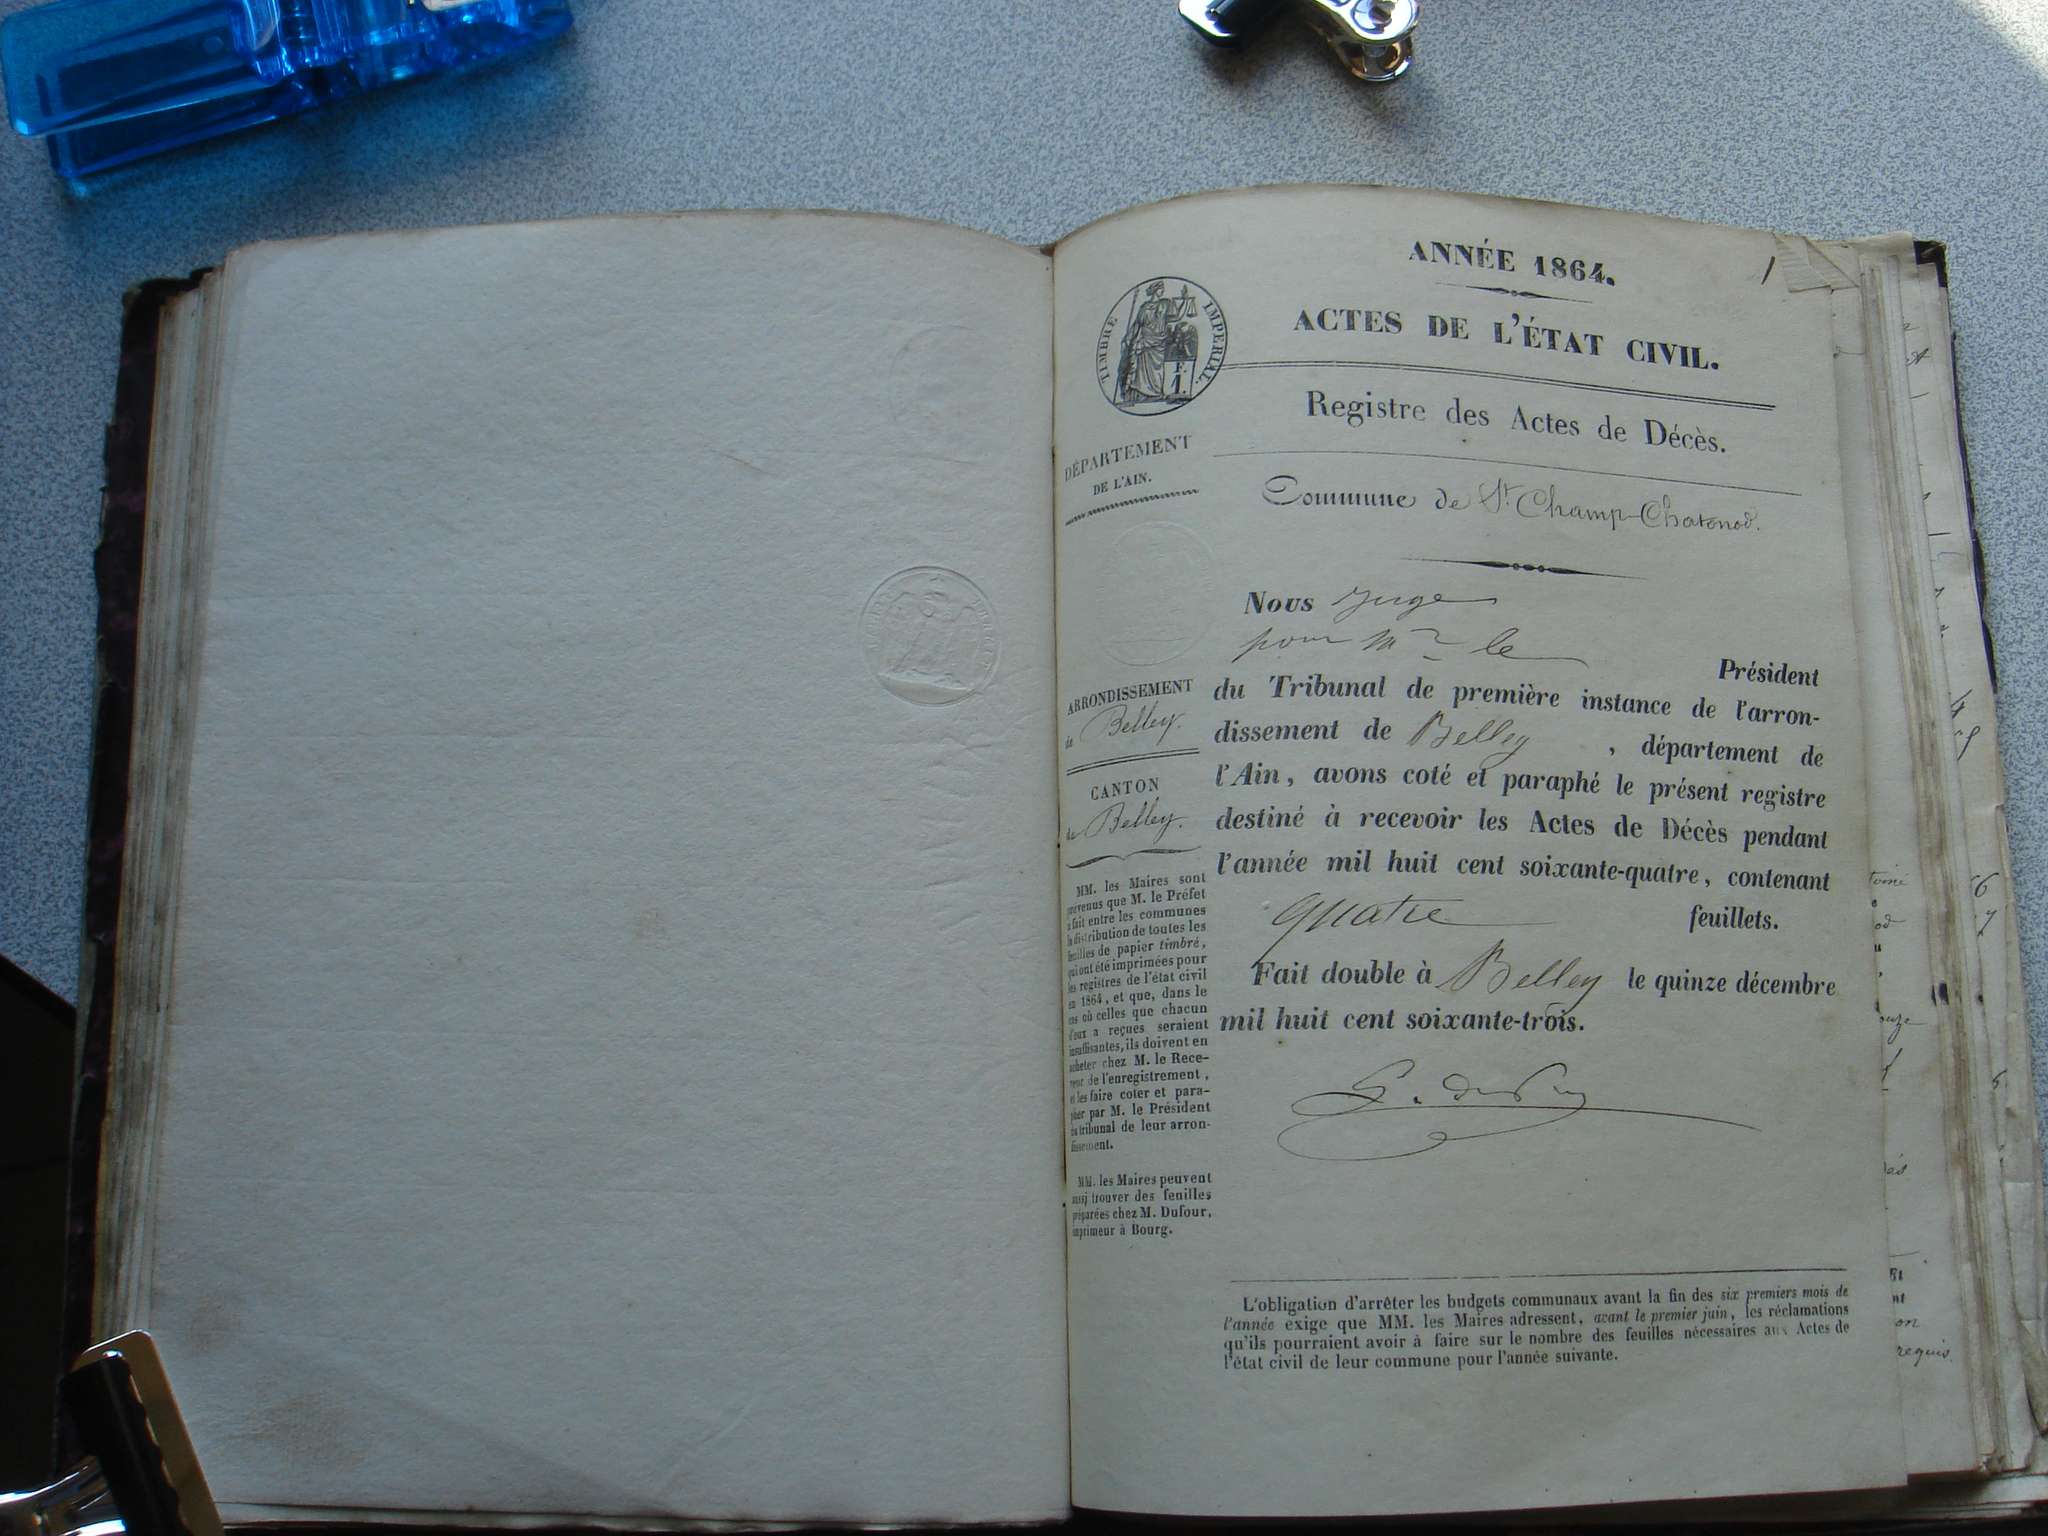 ANNÉE 1864.
1
ACTES DE L'ÉTAT CIVIL.
TIMBRE IMPERIAL.
F.
1.
Registre des Actes de Décès.
DÉPARTEMENT
DE L'AIN.
Commune de St. Champ-Chatonod.
Nous Juge
pour Mr le
Président
du Tribunal de première instance de l'arron-
dissement de Belley, département de
l'Ain, avons coté et paraphé le présent registre
destiné à recevoir les Actes de Décès pendant
l'année mil huit cent soixante-quatre, contenant
quatre feuillets.
Fait double à Belley le quinze décembre
mil huit cent soixante-trois.
ARRONDISSEMENT
de Belley.
CANTON
de Belley.
MM. les Maires sont
prevenus que M. le Préfet
a fait entre les communes
la distribution de toutes les
feuilles de papier timbré,
qui ont été imprimées pour
les registres de l'état civil
en 1864, et que, dans le
cas où celles que chacun
d'eux a reçues seraient
insuffisantes, ils doivent en
acheter chez M. le Rece-
veur de l'enregistrement,
et les faire coter et para-
pher par M. le Président
du tribunal de leur arron-
dissement.
MM. les Maires peuvent
aussi trouver des feuilles
préparées chez M. Dufour,
imprimeur à Bourg.
L'obligation d'arrêter les budgets communaux avant la fin des six premiers mois de
l'année exige que MM. les Maires adressent, avant le premier juin, les réclamations
qu'ils pourraient avoir à faire sur le nombre des feuilles nécessaires aux Actes de
l'état civil de leur commune pour l'année suivante.
requis